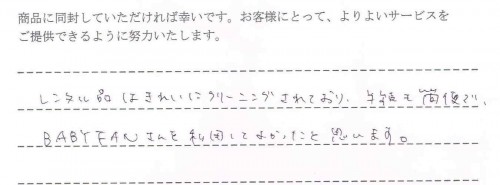 商品に同封していただければ幸いです。お客様にとって、よりよいサービスを
ご提供できるように努力いたします。
レンタル品はきれいにクリーニングされており、手続も簡便で、
BABYFANさんを利用してよかったと思います。